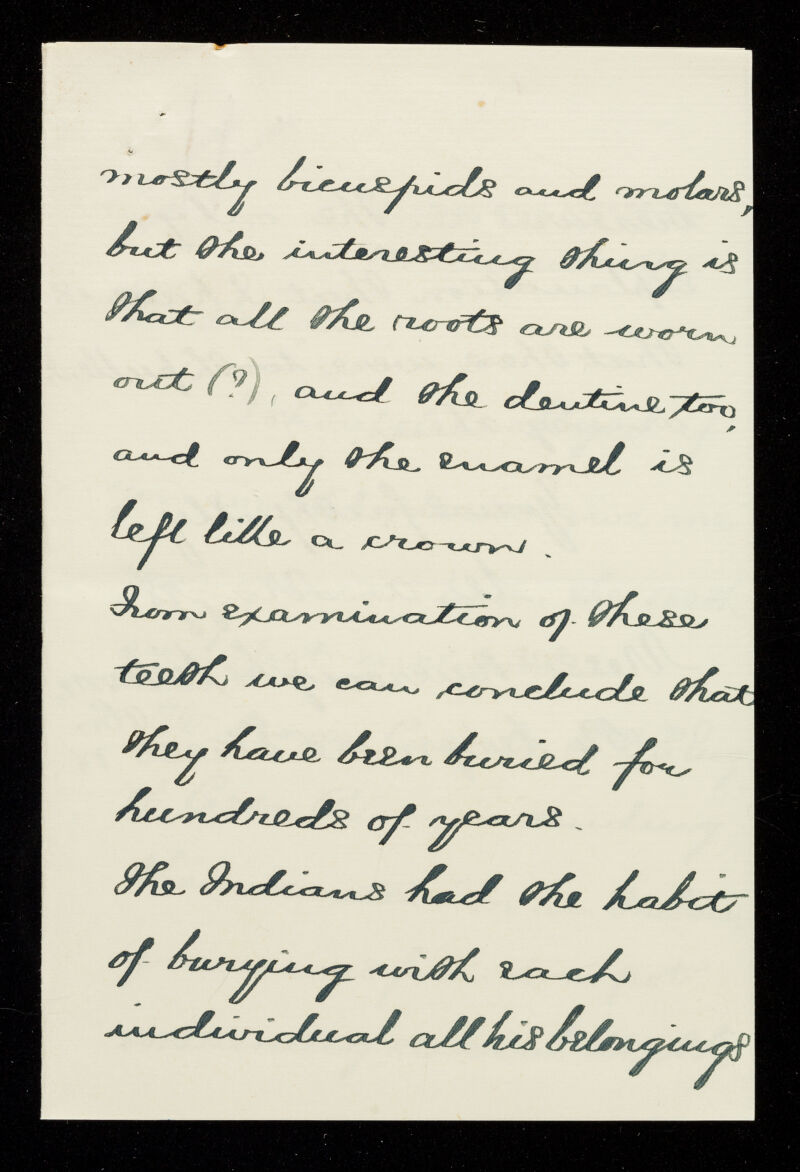 mostly bicuspids and molars,
but the interesting thing is
that all the roots are worn
out (?), and the dentine too,
and only the enamel is
left like a crown.
From examination of these
teeth we can conclude that
they have been buried for
hundreds of years.
The Indians had the habit
of burying with each
individual all his belongings